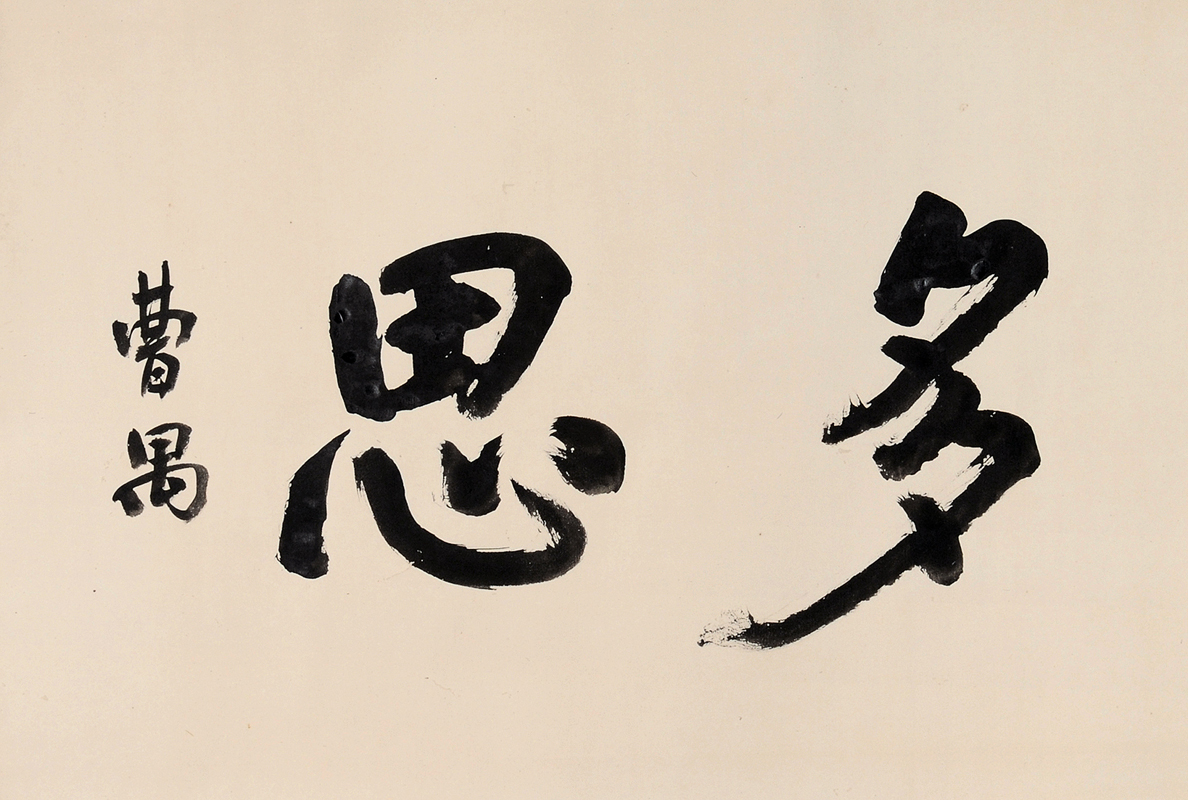 多思
曹禺